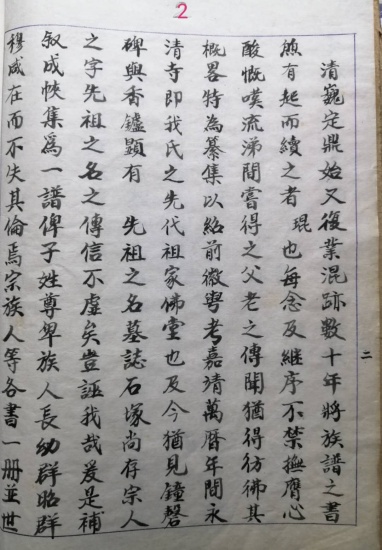 2
清巍定鼎始又復業混跡数十年將族譜之書
無有起而續之者 琨也每念及継序不禁撫膺心
酸慨嘆流涕間嘗得之父老之傳聞猶得彷彿其
概畧特為纂集以紹前徽粤考嘉清萬曆年間永
清寺即我氏之先代祖家佛堂也及今猶見鐘磬
碑與香鑪顕有 先祖之名墓誌石塚尚存宗人
之字先祖之名之傳信不虛矣豈誣我哉爰是補
叙成帙集爲一譜俾子姓尊卑族人長幼群昭群
穆咸在而不失其倫焉宗族人等各書一册並世
二